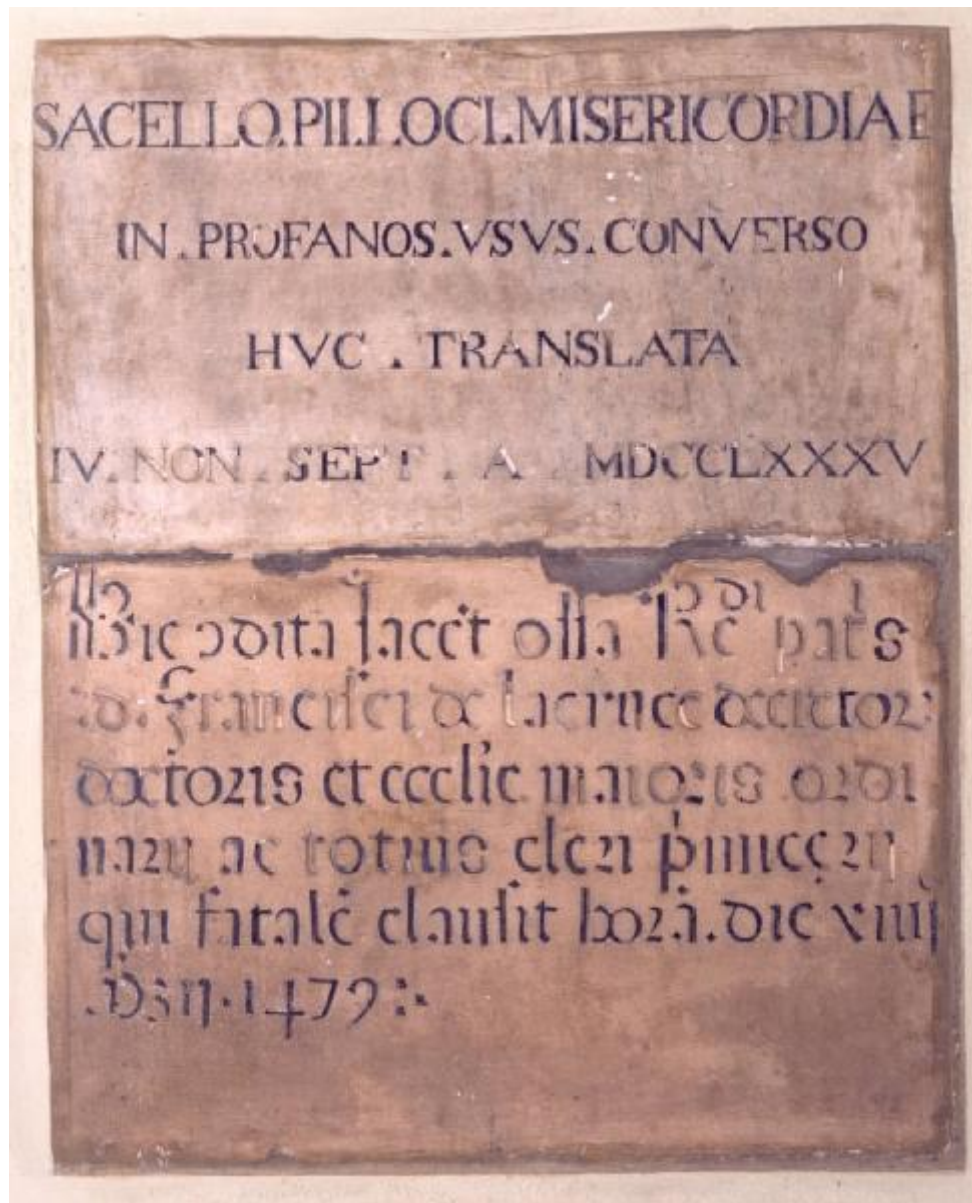 SACELLO.PII.LOCI.MISERICORDIAE
IN.PROFANOS.VSVS.CONVERSO
HVC.TRANSLATA
IV.NON.SEPT.A.MDCCLXXXV
Hic ꝯdita iacēt ossa R̄di patis
.d. Francisci de lacruce decretoꝝ
doctoris et ecclīe maioris ordi
narij ac totius cleri p̄miicerij
qui fatalē clausit horā.die xiiij
1479